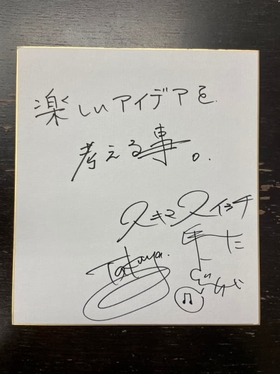 楽しいアイデアを
考える事。
スキマスイッチ
Tatuya.